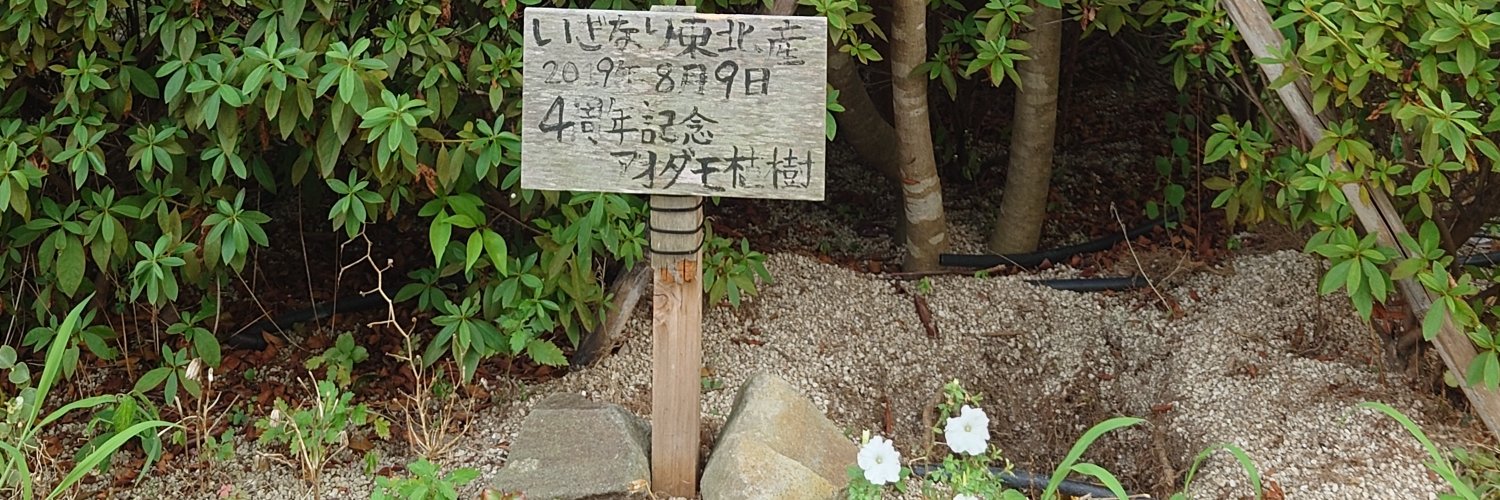 いぎなり東北産
2019年8月9日
4周年記念
アオダモ植樹